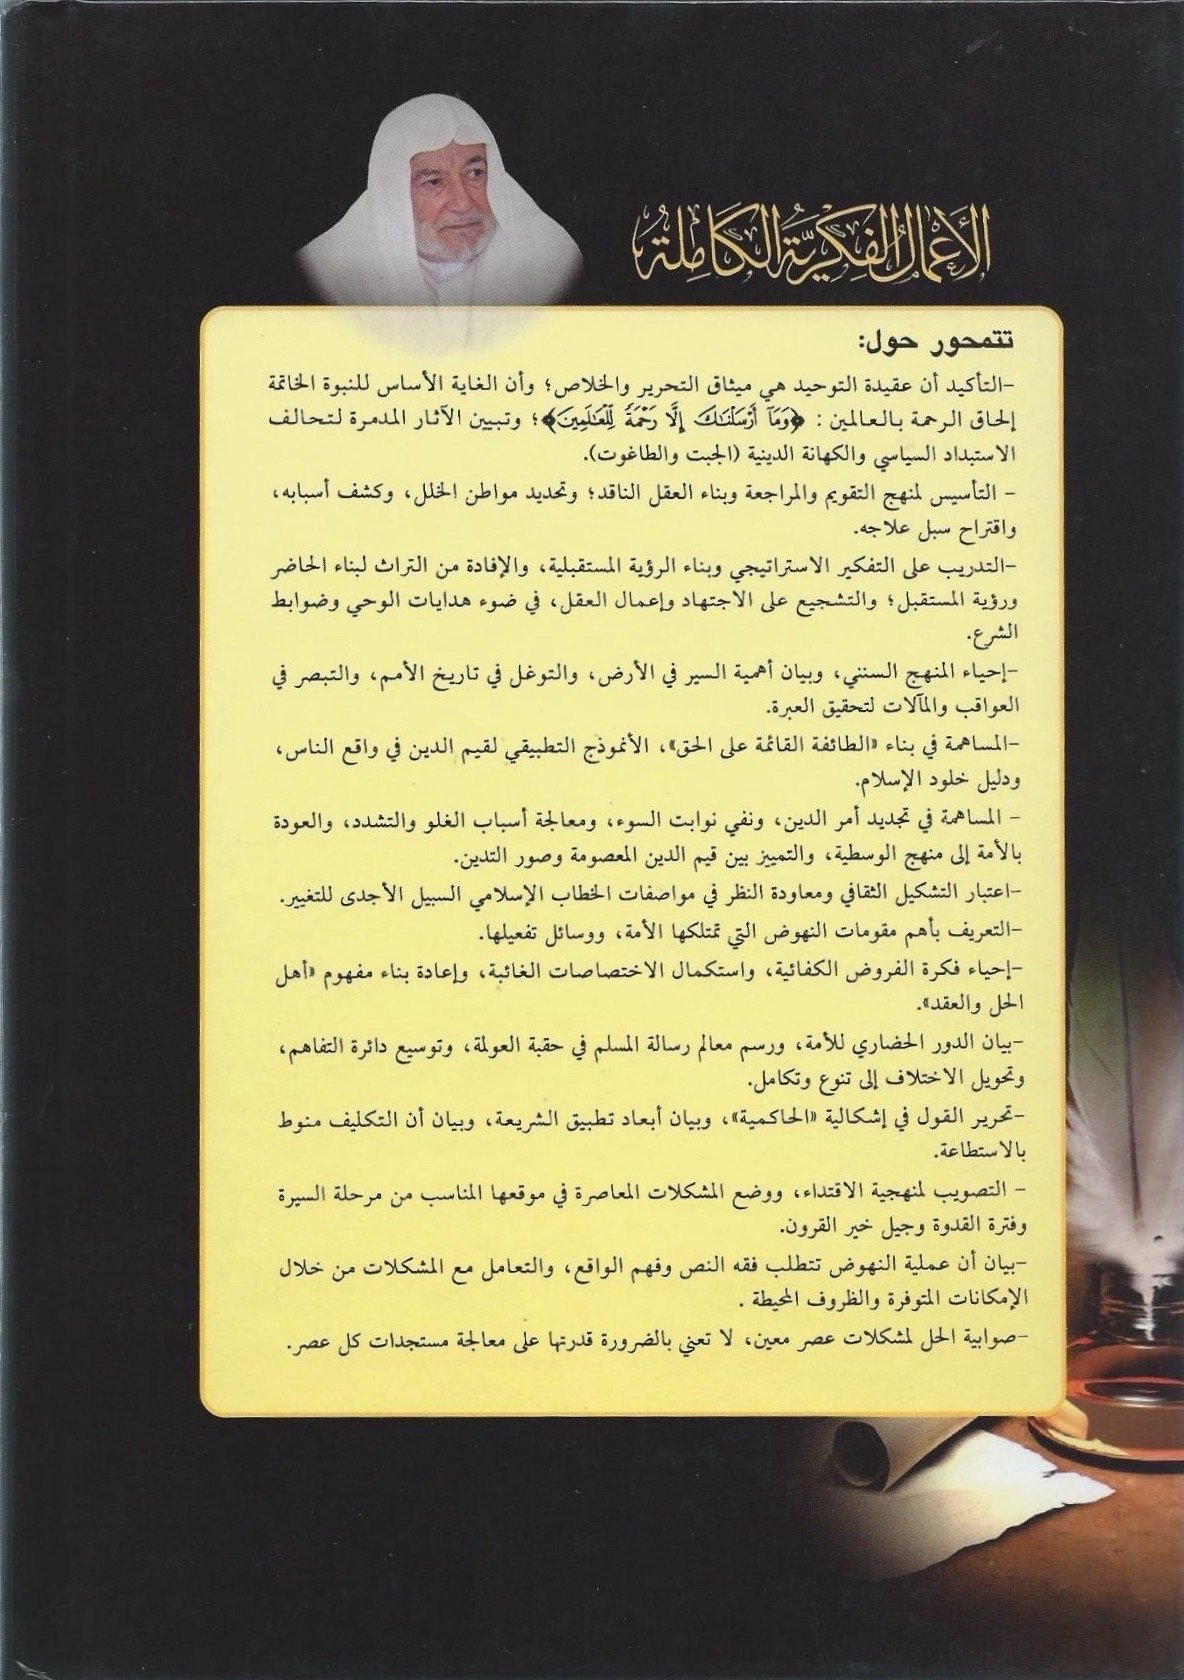 الأعمال الفكرية الكاملة
تتمحور حول:
-التأكيد أن عقيدة التوحيد هي ميثاق التحرير والخلاص؛ وأن الغاية الأساس للنبوة الخاتمة
إلحاق الرحمة بالعالمين : ﴿وَمَآ أَرْسَلْنَٰكَ إِلَّا رَحْمَةً لِّلْعَٰلَمِينَ﴾؛ وتبيين الآثار المدمرة لتحالف
الاستبداد السياسي والكهانة الدينية (الجبت والطاغوت).
- التأسيس لمنهج التقويم والمراجعة وبناء العقل الناقد؛ وتحديد مواطن الخلل، وكشف أسبابه،
واقتراح سبل علاجه.
-التدريب على التفكير الاستراتيجي وبناء الرؤية المستقبلية، والإفادة من التراث لبناء الحاضر
ورؤية المستقبل؛ والتشجيع على الاجتهاد وإعمال العقل، في ضوء هدايات الوحي وضوابط
الشرع.
-إحياء المنهج السنني، وبيان أهمية السير في الأرض، والتوغل في تاريخ الأمم، والتبصر في
العواقب والمآلات لتحقيق العبرة.
-المساهمة في بناء «الطائفة القائمة على الحق»، الأنموذج التطبيقي لقيم الدين في واقع الناس،
ودليل خلود الإسلام.
- المساهمة في تجديد أمر الدين، ونفي نوابت السوء، ومعالجة أسباب الغلو والتشدد، والعودة
بالأمة إلى منهج الوسطية، والتمييز بين قيم الدين المعصومة وصور التدين.
-اعتبار التشكيل الثقافي ومعاودة النظر في مواصفات الخطاب الإسلامي السبيل الأجدى للتغيير.
-التعريف بأهم مقومات النهوض التي تمتلكها الأمة، ووسائل تفعيلها.
-إحياء فكرة الفروض الكفائية، واستكمال الاختصاصات الغائبة، وإعادة بناء مفهوم «أهل
الحل والعقد».
-بيان الدور الحضاري للأمة، ورسم معالم رسالة المسلم في حقبة العولمة، وتوسيع دائرة التفاهم،
وتحويل الاختلاف إلى تنوع وتكامل.
-تحرير القول في إشكالية «الحاكمية»، وبيان أبعاد تطبيق الشريعة، وبيان أن التكليف منوط
بالاستطاعة.
- التصويب لمنهجية الاقتداء، ووضع المشكلات المعاصرة في موقعها المناسب من مرحلة السيرة
وفترة القدوة وجيل خير القرون.
-بيان أن عملية النهوض تتطلب فقه النص وفهم الواقع، والتعامل مع المشكلات من خلال
الإمكانات المتوفرة والظروف المحيطة .
-صوابية الحل لمشكلات عصر معين، لا تعني بالضرورة قدرتها على معالجة مستجدات كل عصر.